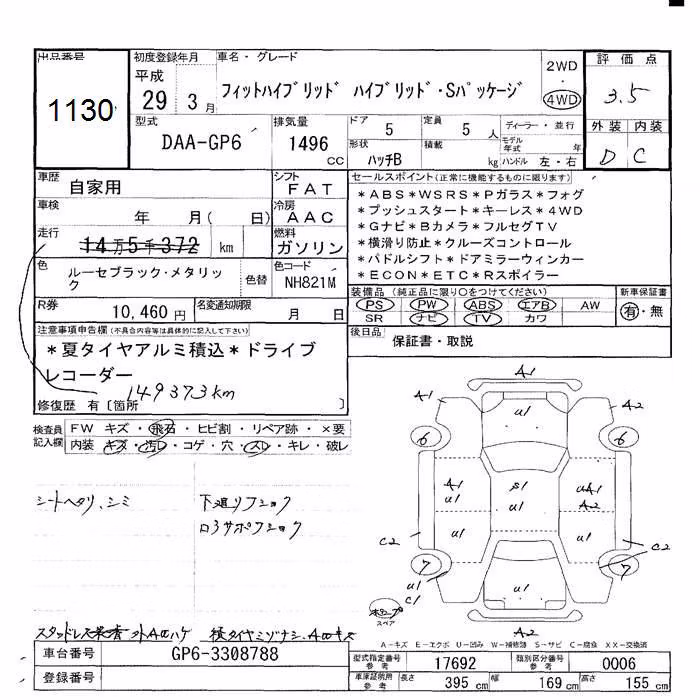 出品番号
1130
初度登録年月
平成
29年3月
車名・グレード
フィットハイブリッド ハイブリッド・Sパッケージ
2WD
・
4WD
評価点
3.5
外装 内装
D C
型式
DAA-GP6
排気量
1496
CC
ドア 5
定員 5人
形状
ハッチB
積載 kg
ディーラー・並行
モデル年式 年
ハンドル 左・右
車歴
自家用
シフト
FAT
車検
年 月( 日)
冷房
AAC
走行
14万5千372 km
燃料
ガソリン
色
ルーセブラック・メタリック
色替
色コード
NH821M
R券
10,460円
名変通知期限
月 日
セールスポイント(正常に機能するものに限ります)
*ABS*WSRS*Pガラス*フォグ
*プッシュスタート*キーレス*4WD
*Gナビ*Bカメラ*フルセグTV
*横滑り防止*クルーズコントロール
*パドルシフト*ドアミラーウィンカー
*ECON*ETC*Rスポイラー
装備品(純正品に限り○をつけてください)
PS PW ABS エアB AW
SR ナビ TV カワ
新車保証書
有・無
後日品
保証書・取説
注意事項申告欄(不具合内容等は具体的に記入して下さい)
*夏タイヤアルミ積込*ドライブ
レコーダー
149373km
修復歴 有〔箇所 〕
検査員記入欄
FW キズ・飛石・ヒビ割・リペア跡・×要
内装 キズ・汚レ・コゲ・穴・スレ・キレ・破レ
シートヘタリ、シミ
下廻リフショク
ロアサポフショク
A1
A1 u1 A2
6 6
A1 S1 uA1
u1 u1 A2
u1 u1
C2 C2
7 7
u1 u1
C1
スペア
A2
A-キズ E-エクボ U-凹み W-補修跡 S-サビ C-腐食 XX-交換済
車台番号
GP6-3308788
登録番号
型式指定番号
参考
17692
類別区分番号
参考
0006
車庫証明用
参考
長さ 395 cm
幅 169 cm
高さ 155 cm